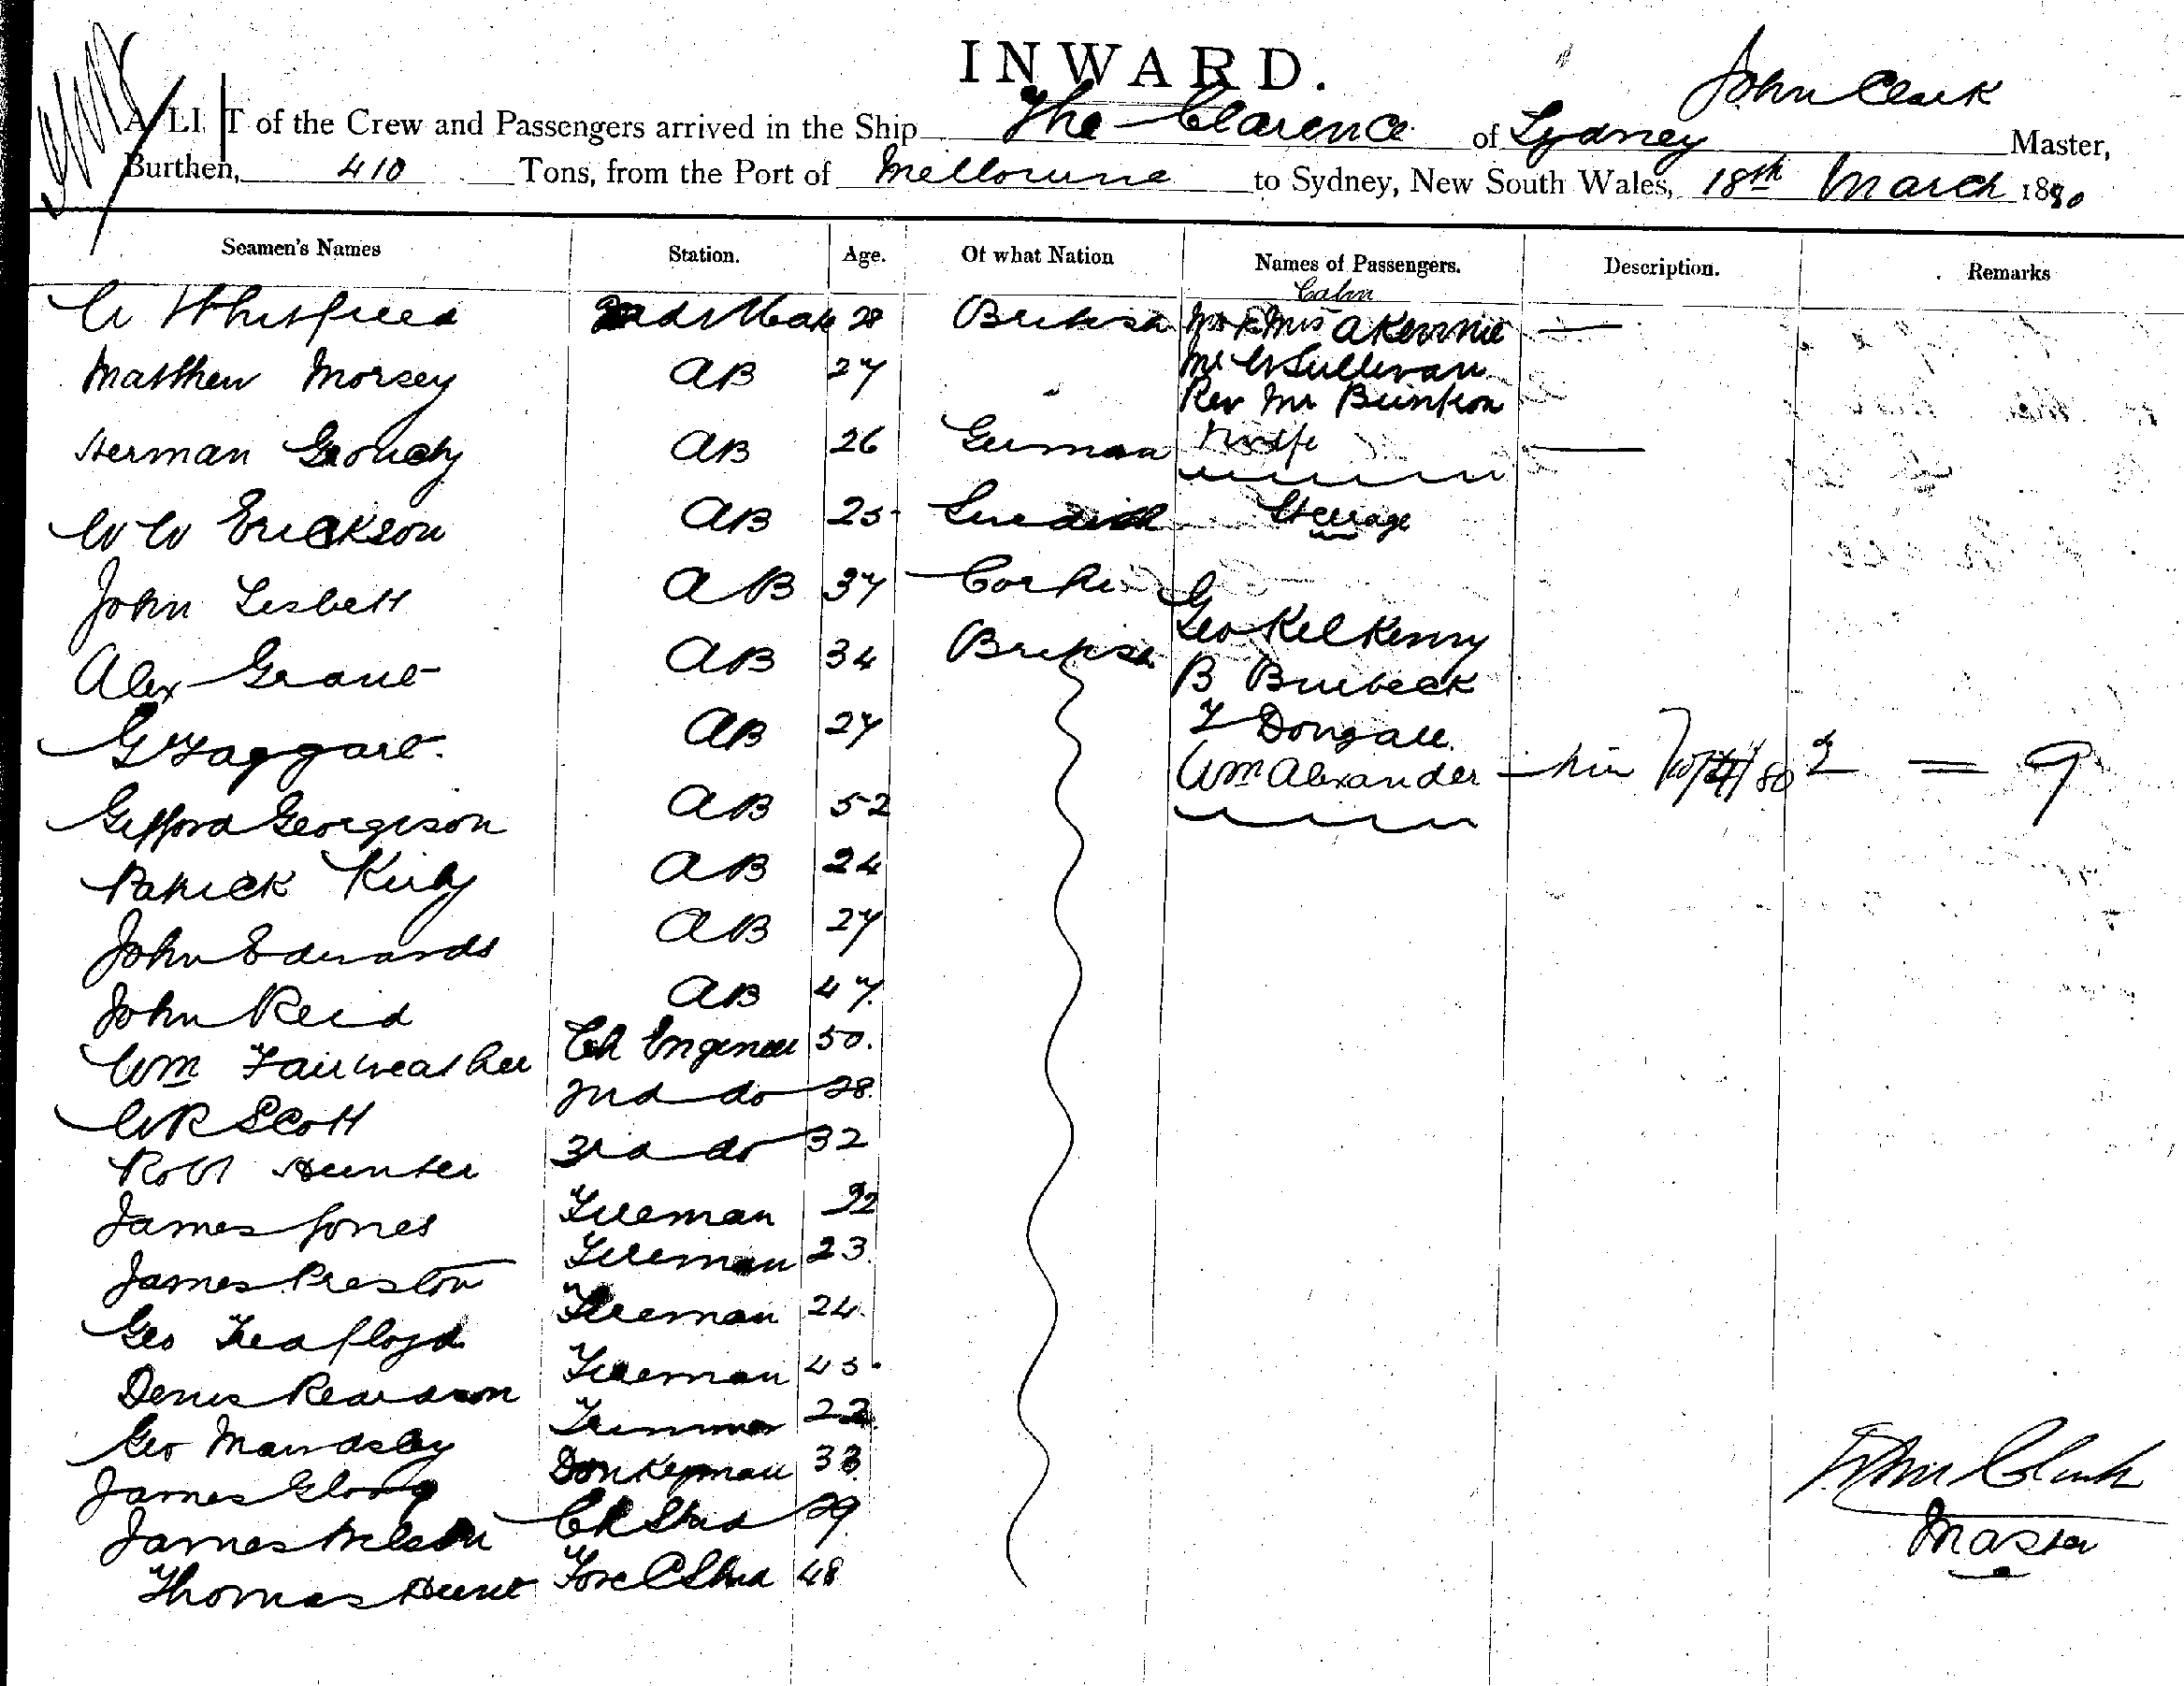 INWARD.
John Clark
A LIST of the Crew and Passengers arrived in the Ship The Clarence of Sydney Master,
Burthen, 410 Tons, from the Port of Melbourne to Sydney, New South Wales, 18th March 1880
Seamen's Names Station. Age. Of what Nation Names of Passengers. Description. Remarks
Cabin
W Whitfield 2nd Mate 28 British Mr & Mrs A Kennie —
Mr W Sullivan
Matthew Morsey AB 27 "
Rev Mr Bunton
Herman AB 26 German & wife —
W W Erickson AB 25 Swedish Steerage
John Lisbett AB 37 Corfu
Geo Kilkenny
Alex Grant AB 34 British
B Burbeck
G Taggart. AB 27 T Dougall
Wm Alexander 9
Gifford Georgeson AB 52
Patrick Kirby AB 24
John Edwards AB 27
John Reid AB 47
Wm Fairweather Ch Engineer 50.
W R Scott 2nd do 28.
Robt Hunter 3rd do 32
James Jones Fireman 32
James Preston Fireman 23.
Geo Fireman 24.
Denis Reardson Fireman 45.
Geo Mawdsley Trimmer 22.
James Donkeyman 33.
James Nelson Ch Stwd 29
Thomas Hunt Fore C Stwd 48
John Clark
Master